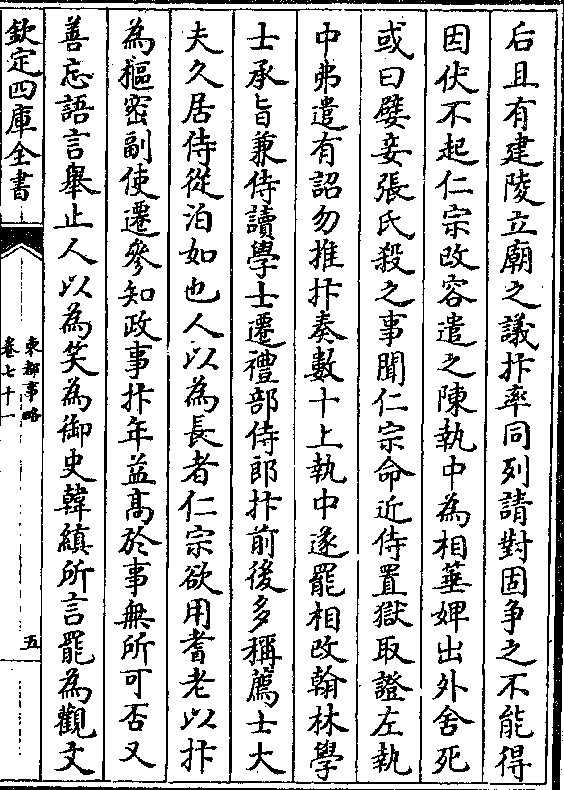 后且有建陵立廟之議抃率同列請對固争之不能得
因伏不起仁宗改容遣之陳執中為相箠婢出外舍死
或曰嬖妾張氏殺之事聞仁宗命近侍置獄取證左執
中弗遣有詔勿推抃奏數十上執中遂罷相改翰林學
士承旨兼侍讀學士遷禮部侍郎抃前後多稱薦士大
夫久居侍從泊如也人以為長者仁宗欲用耆老以抃
為樞密副使遷參知政事抃年益髙於事無所可否又
善忘語言舉止人以為笑為御史韓縝所言罷為觀文
欽定四庫全書
東都事略
卷七十一
五